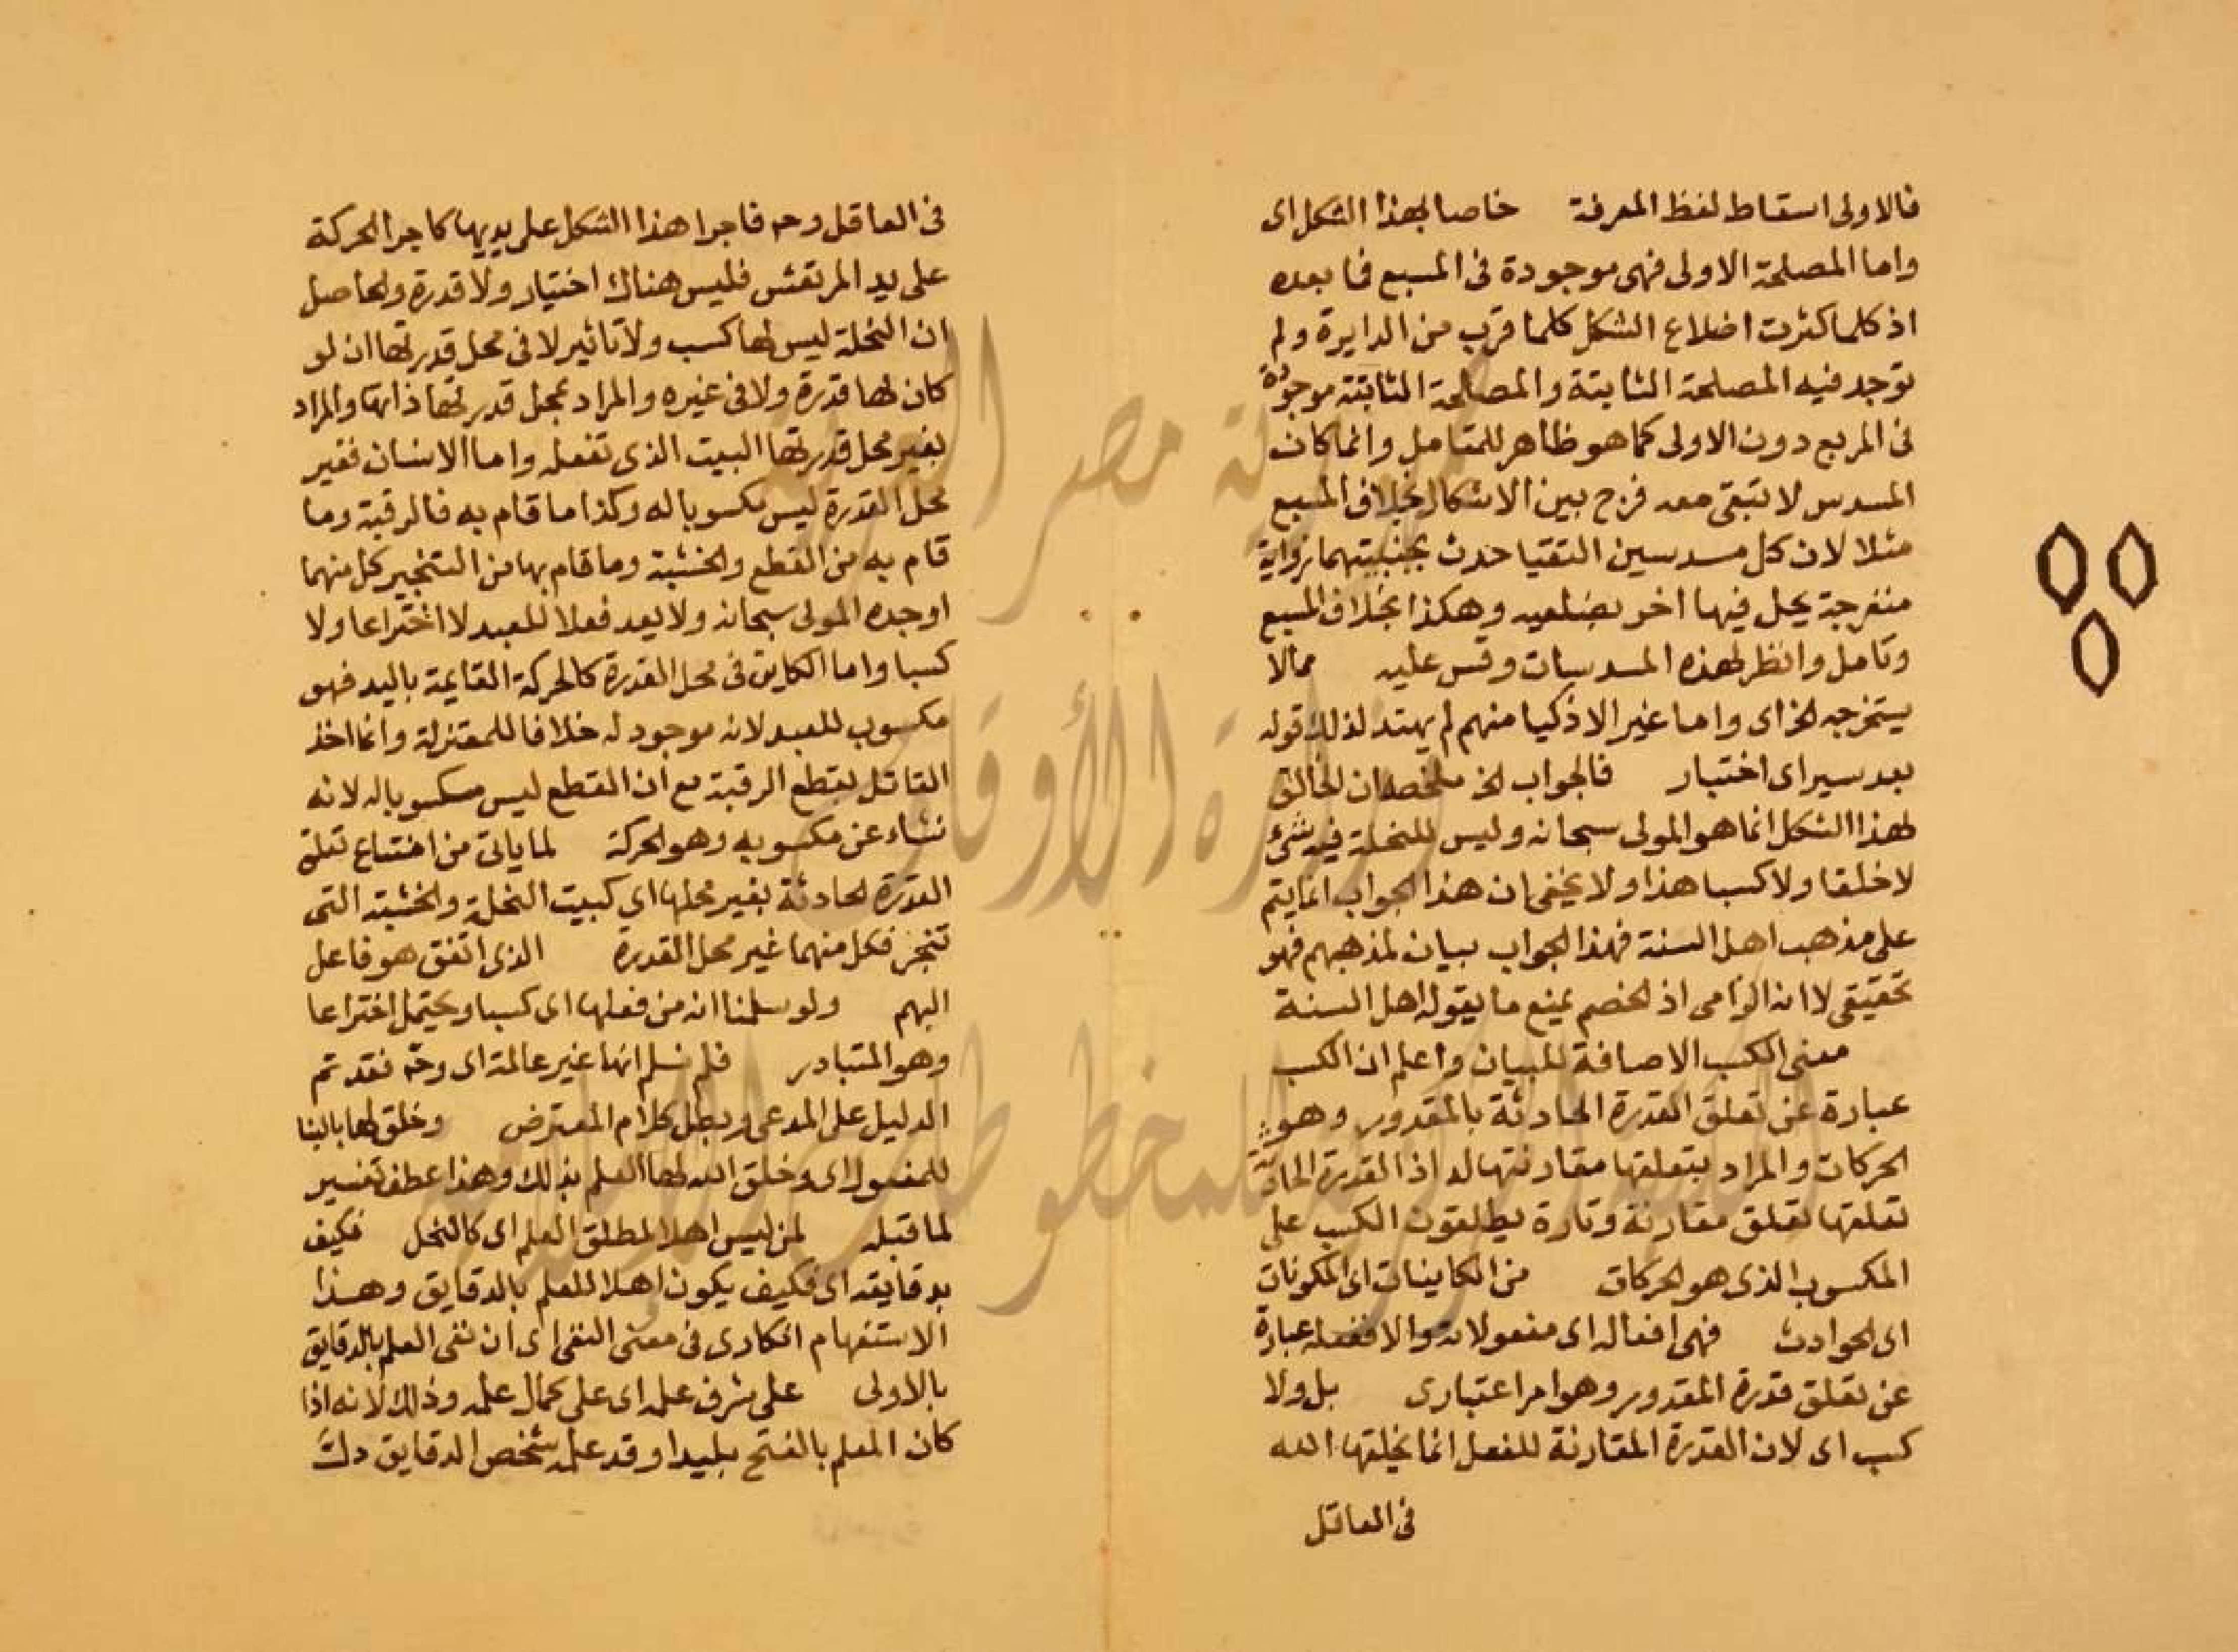 فالاولى اسقاط لفظ المعرفة خاصا بهذا الشكل اى
واما المصلحة الاولى فهى موجودة فى المسبع فما بعده
اذ كلما كثرت اضلاع الشكل كلما قرب من الدايرة ولم
توجد فيه المصلحة الثانية والمصلحة الثانية موجودة
فى المربع دون الاولى كما هو ظاهر للمتامل وانما كان
المسدس لا تبقى معه فرج بين الاشكال بخلاف المسبع
مثلا لان كل مسدسين التقيا حدث بجنبيهما زواية
منفرجة يحل فيها اخر بضلعيه وهكذا بخلاف المسبع
وتامل وانظر لهذه المسدسات وقس عليه ممالا
يستخرجه الخ اى واما غير الاذكيا منهم لم يهتد لذلك قوله
بعد سبر اى اختبار فالجواب الخ ملخصه ان الخالق
لهذا الشكل انما هو المولى سبحانه وليس للنحلة فيه شىء
لا خلقا ولا كسبا هذا ولا يخفى ان هذا الجواب انما يتم
على مذهب اهل السنة فهذا الجواب بيان لمذهبهم فهو
تحقيقى لا انه الزامى اذ الخصم يمنع ما يقوله اهل السنة
معنى الكسب الاضافة للبيان واعلم ان الكسب
عبارة عن تعلق القدرة الحادثة بالمقدور وهو
الحركات والمراد بتعلقها مقارنتها له اذ القدرة الحادثة
تعلقها تعلق مقارنة وتارة يطلقون الكسب على
المكسوب الذى هو الحركات من الكاينات اى المكونات
اى الحوادث فهى افعاله اى مفعولاته والا ففعله عبارة
عن تعلق قدرة المقدور وهو امر اعتبارى بل ولا
كسب اى لان القدرة المقارنة للفعل انما يخلقها الله
فى العاقل
فى العاقل وح فاجرا هذا الشكل على يديها كاجرا الحركة
على يد المرتعش فليس هناك اختيار ولا قدرة والحاصل
ان النحلة ليس لها كسب ولا تاثير لا فى محل قدرتها ان لو
كان لها قدرة ولا فى غيره والمراد بمحل قدرتها ذاتها والمراد
بغير محل قدرتها البيت الذى تفعله واما الانسان فغير
محل القدرة ليس مكسوبا له وكذا ما قام به فالرقبة وما
قام به من القطع والخشبة وما قام بها من التنجير كل منهما
اوجده المولى سبحانه ولا يعد فعلا للعبد لا اختراعا ولا
كسبا واما الكاين فى محل القدرة كالحركة القايمة باليد فهو
مكسوب للعبد لانه موجود له خلافا للمعتزلة وانما اخذ
القاتل بقطع الرقبة مع ان القطع ليس مكسوبا له لانه
نشاء عن مكسوبه وهو الحركة لما ياتى من امتناع تعلق
القدرة الحادثة بغير محلها اى كبيت النحلة والخشبة التى
تنجز فكل منهما غير محل القدرة الذى اتفق هو فاعل
اليهم ولو سلمنا انه من فعلها اى كسبا ويحتمل اختراعا
وهو المتبادر فلم نسلم انها غير عالمة اى وح فقد تم
الدليل على المدعى وبطل كلام المعترض وخلق لها بالبنا
للمفعول اى وخلق الله لها العلم بذلك وهذا عطف تفسير
لما قبله لمن ليس اهلا لمطلق العلم اى كالنحل فكيف
بدقايقه اى فكيف يكون اهلا للعلم بالدقايق وهذا
الاستفهام انكارى فى معنى النفى اى ان نفى العلم بالدقايق
بالاولى على شرف علمه اى على كمال علمه وذلك لانه اذا
كان المعلم بالفتح بليدا وقد علمه شخص الدقايق دلت